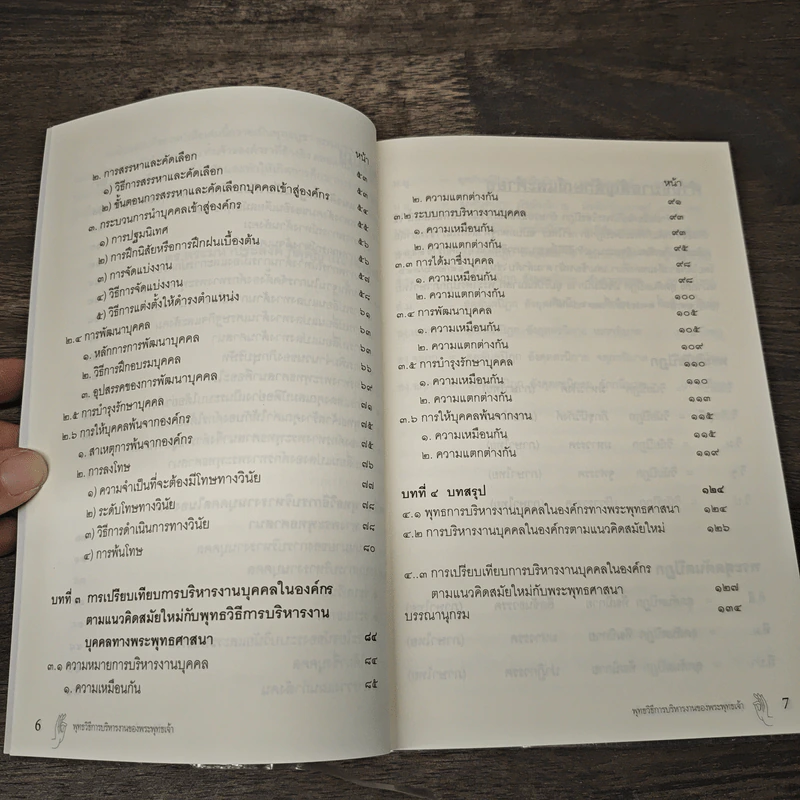 หน้า
๒. การสรรหาและคัดเลือก ๕๓
๑) วิธีการสรรหาและคัดเลือก ๕๑
๒) ขั้นตอนการสรรหาและคัดเลือกบุคคลเข้าสู่องค์กร ๕๔
๓. กระบวนการนำบุคคลเข้าสู่องค์กร ๕๕
๑) การปฐมนิเทศ ๕๖
๒) การฝึกนิสัยหรือการฝึกฝนเบื้องต้น ๕๖
๓) การจัดแบ่งงาน ๕๗
๔) วิธีการจัดแบ่งงาน ๕๘
๕) วิธีการแต่งตั้งให้ดำรงตำแหน่ง ๖๑
๒.๔ การพัฒนาบุคคล ๖๓
๑. หลักการการพัฒนาบุคคล ๖๓
๒. วิธีการฝึกอบรมบุคคล ๖๖
๓. อุปสรรคของการพัฒนาบุคคล ๖๙
๒.๕ การบำรุงรักษาบุคคล ๗๑
๒.๖ การให้บุคคลพ้นจากองค์กร ๗๕
๑. สาเหตุการพ้นจากองค์กร ๗๕
๒. การลงโทษ ๗๖
๑) ความจำเป็นที่จะต้องมีโทษทางวินัย ๗๗
๒) ระดับโทษทางวินัย ๗๘
๓) วิธีการดำเนินการทางวินัย ๗๘
๔) การพ้นโทษ ๘๐
บทที่ ๓ การเปรียบเทียบการบริหารงานบุคคลในองค์กร
ตามแนวคิดสมัยใหม่กับพุทธวิธีการบริหารงาน
บุคคลทางพระพุทธศาสนา ๘๔
๓.๑ ความหมายการบริหารงานบุคคล ๘๔
๑. ความเหมือนกัน ๘๕
6 พุทธวิธีการบริหารงานของพระพุทธเจ้า
หน้า
๒. ความแตกต่างกัน ๙๑
๓.๒ ระบบการบริหารงานบุคคล ๙๓
๑. ความเหมือนกัน ๙๓
๒. ความแตกต่างกัน ๙๕
๓.๓ การได้มาซึ่งบุคคล ๙๘
๑. ความเหมือนกัน ๙๘
๒. ความแตกต่างกัน ๑๐๐
๓.๔ การพัฒนาบุคคล ๑๐๕
๑. ความเหมือนกัน ๑๐๕
๒. ความแตกต่างกัน ๑๐๙
๓.๕ การบำรุงรักษาบุคคล ๑๑๐
๑. ความเหมือนกัน ๑๑๐
๒. ความแตกต่างกัน ๑๑๓
๓.๖ การให้บุคคลพ้นจากงาน ๑๑๕
๑. ความเหมือนกัน ๑๑๕
๒. ความแตกต่างกัน ๑๑๙
บทที่ ๔ บทสรุป ๑๒๔
๔.๑ พุทธการบริหารงานบุคคลในองค์กรทางพระพุทธศาสนา ๑๒๔
๔.๒ การบริหารงานบุคคลในองค์กรตามแนวคิดสมัยใหม่ ๑๒๖
๔..๓ การเปรียบเทียบการบริหารงานบุคคลในองค์กร
ตามแนวคิดสมัยใหม่กับพระพุทธศาสนา ๑๒๗
บรรณานุกรม ๑๓๔
พุทธวิธีการบริหารงานของพระพุทธเจ้า 7